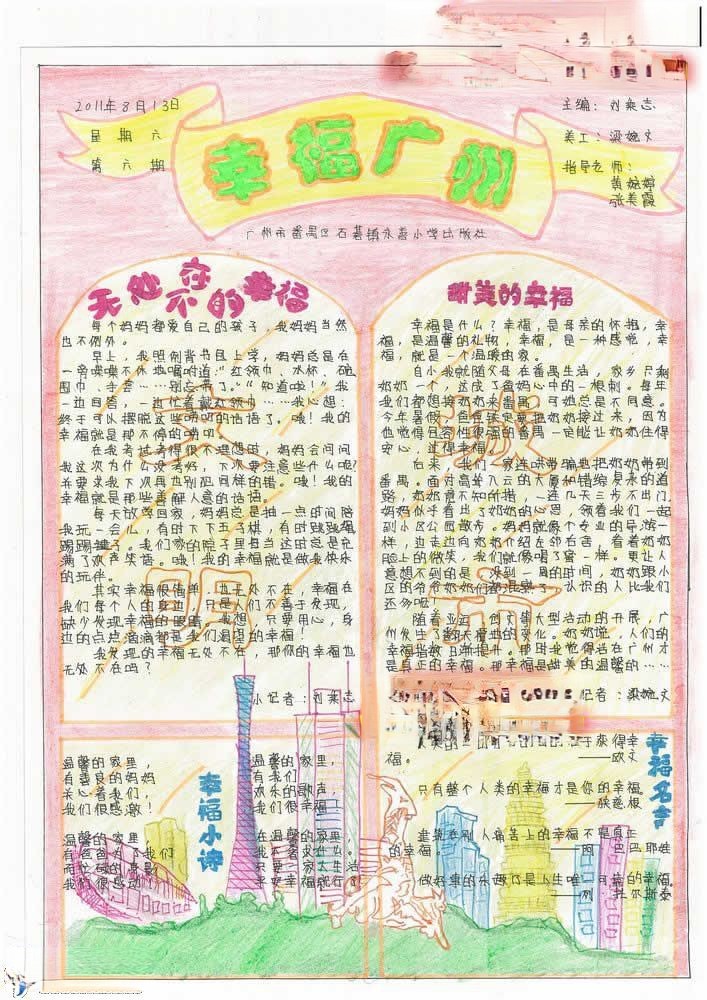 2011年8月13日
星期六
第六期
幸福广州
主编：刘秉志
美工：梁婉文
指导老师：
黄婉婷
张美霞
广州市番禺区石碁镇永善小学出版社
无处不在的幸福
每个妈妈都爱自己的孩子，我妈妈当然
也不例外。
早上，我照例背书包上学，妈妈总是在
一旁喋喋不休地唱道：“红领巾、水杯、确
围巾、手套……别忘带了。”“知道啦！”我
一边回答，一边忙着戴红领巾……我心想：
终于可以摆脱这些唠叨的话语了。哦！我的
幸福就是那不停的唠叨。
在我考试考得很不理想时，妈妈会问问
我这次为什么没考好，下次要注意些什么呢？
并要求我下次再也别犯同样的错。哦！我的
幸福就是那些善解人意的话语。
每天放学回家，妈妈总是抽一点时间陪
我玩一会儿，有时下下五子棋，有时跳跳绳
踢踢毽子。我们家的院子里每当这时总是充
满了欢声笑语。哦！我的幸福就是做我快乐
的玩伴。
其实幸福很简单，也无处不在，幸福在
我们每个人的身边，只是人们不善于发现，
缺少发现幸福的眼睛，我想，只要用心，身
边的点点滴滴都是我们渴望的幸福！
我发现的幸福无处不在，那你的幸福也
无处不在吗？
小记者：刘秉志
甜美的幸福
幸福是什么？幸福，是母亲的怀抱，幸
福，是温馨的礼物，幸福，是一种感觉，幸
福，就是一个温暖的家。
自小我就随父母在番禺生活，家乡只剩
奶奶一个，这成了爸妈心中的一根刺。每年
我们都想接奶奶来番禺，可她总是不同意。
今年暑假，爸爸铁定要把奶奶接过来，因为
他觉得包容性很强的番禺一定能让奶奶住得
安心，过得幸福。
后来，我们一家连哄带骗地把奶奶带到
番禺。面对高耸入云的大厦和错综复杂的道
路，奶奶竟不知所措，一连几天三步不出门。
妈妈似乎看出了奶奶的心思，领着我们一起
到小区公园散步。妈妈就像个专业的导游一
样，边走边向奶奶介绍左邻右舍，看着奶奶
脸上的微笑，我们就像喝了蜜一样。更让人
意想不到的是，没到一周的时间，奶奶跟小
区的爷爷奶奶们都混熟了，认识的人比我们
还多呢！
随着亚运、创文等大型活动的开展，广
州发生了翻天覆地的变化。奶奶说，人们的
幸福指数日渐提升。那时我觉得活在广州才
是真正的幸福。那幸福是甜美的温馨的……
记者：梁婉文
温馨的家里，
有善良的妈妈
关心着我们，
我们很感激！
温馨的家里
有爸爸为了我们
而忙碌的身影
我们很感动
幸福小诗
温馨的家里，
有我们
欢乐的歌声，
我们很幸福！
在温馨的家里
我不需求什么。
只要一家人生活
来安幸福就行了
幸福名言
福。
——欧文
只有整个人类的幸福才是你的幸福。
——狄慈根
建筑在别人痛苦上的幸福不是真正
的幸福。
——阿·巴巴耶娃
做好事的乐趣乃是人生唯一可靠的幸福。
——列·托尔斯泰